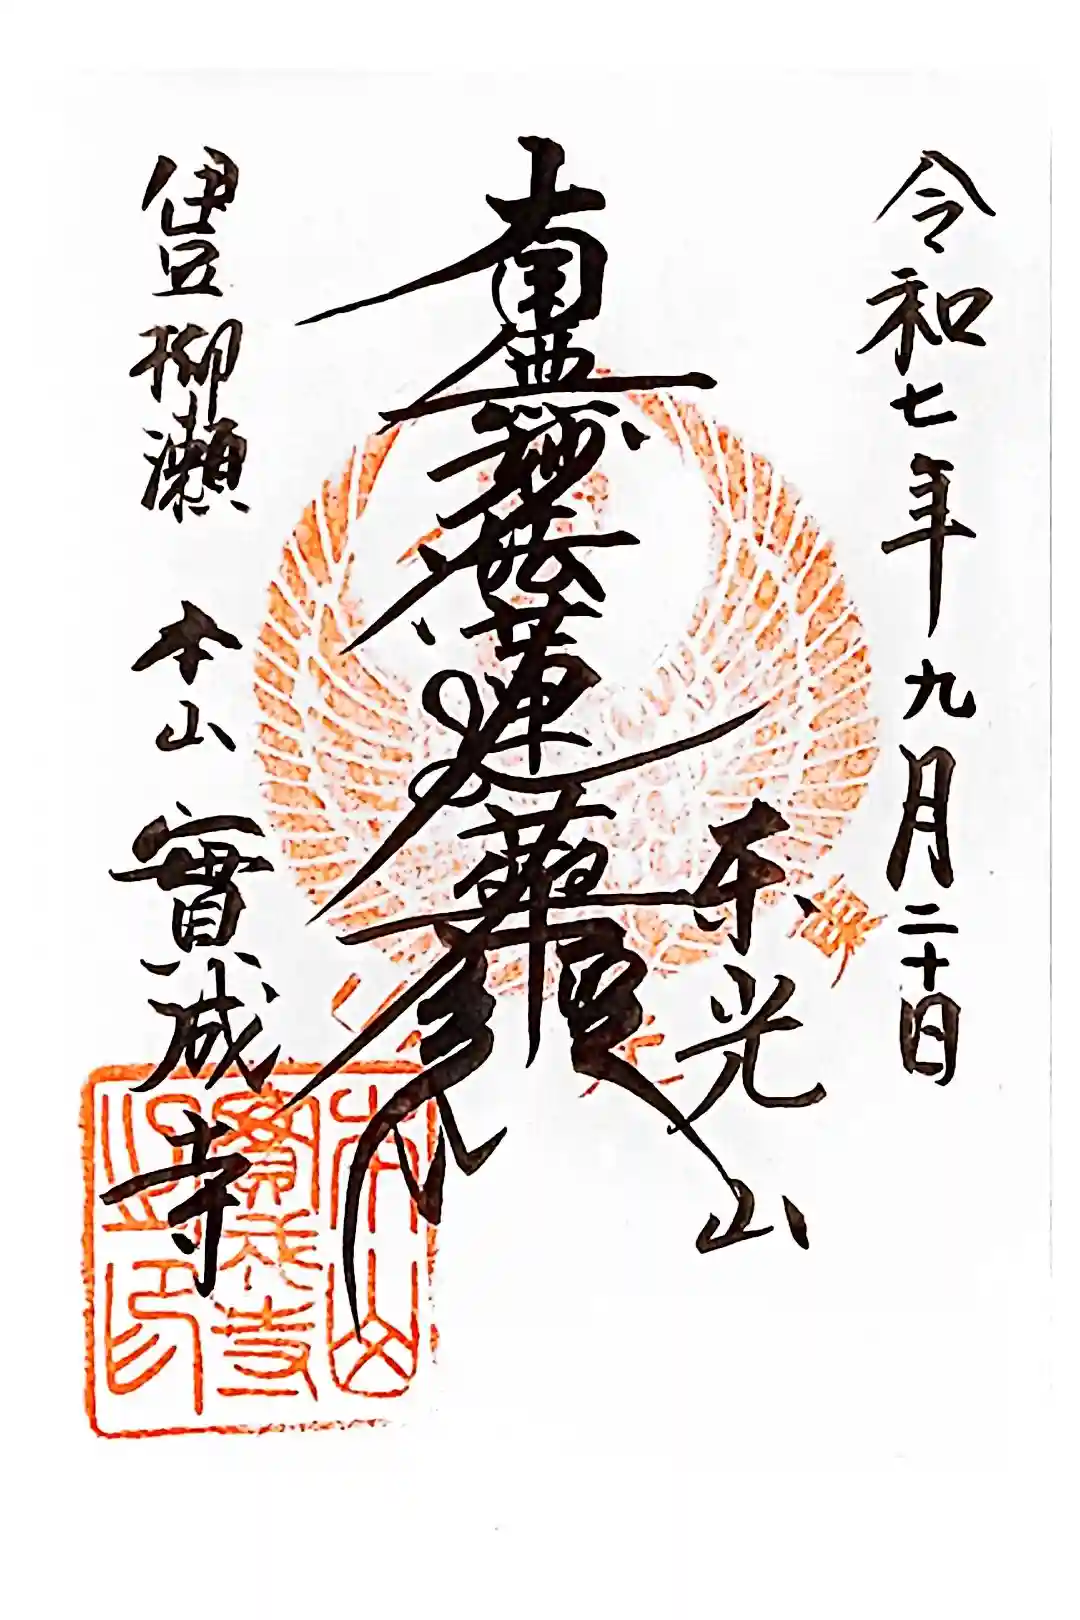 令和七年九月二十日
東光山
南無妙法蓮華經
伊豆柳瀬 本山 實成寺
本山
實成寺